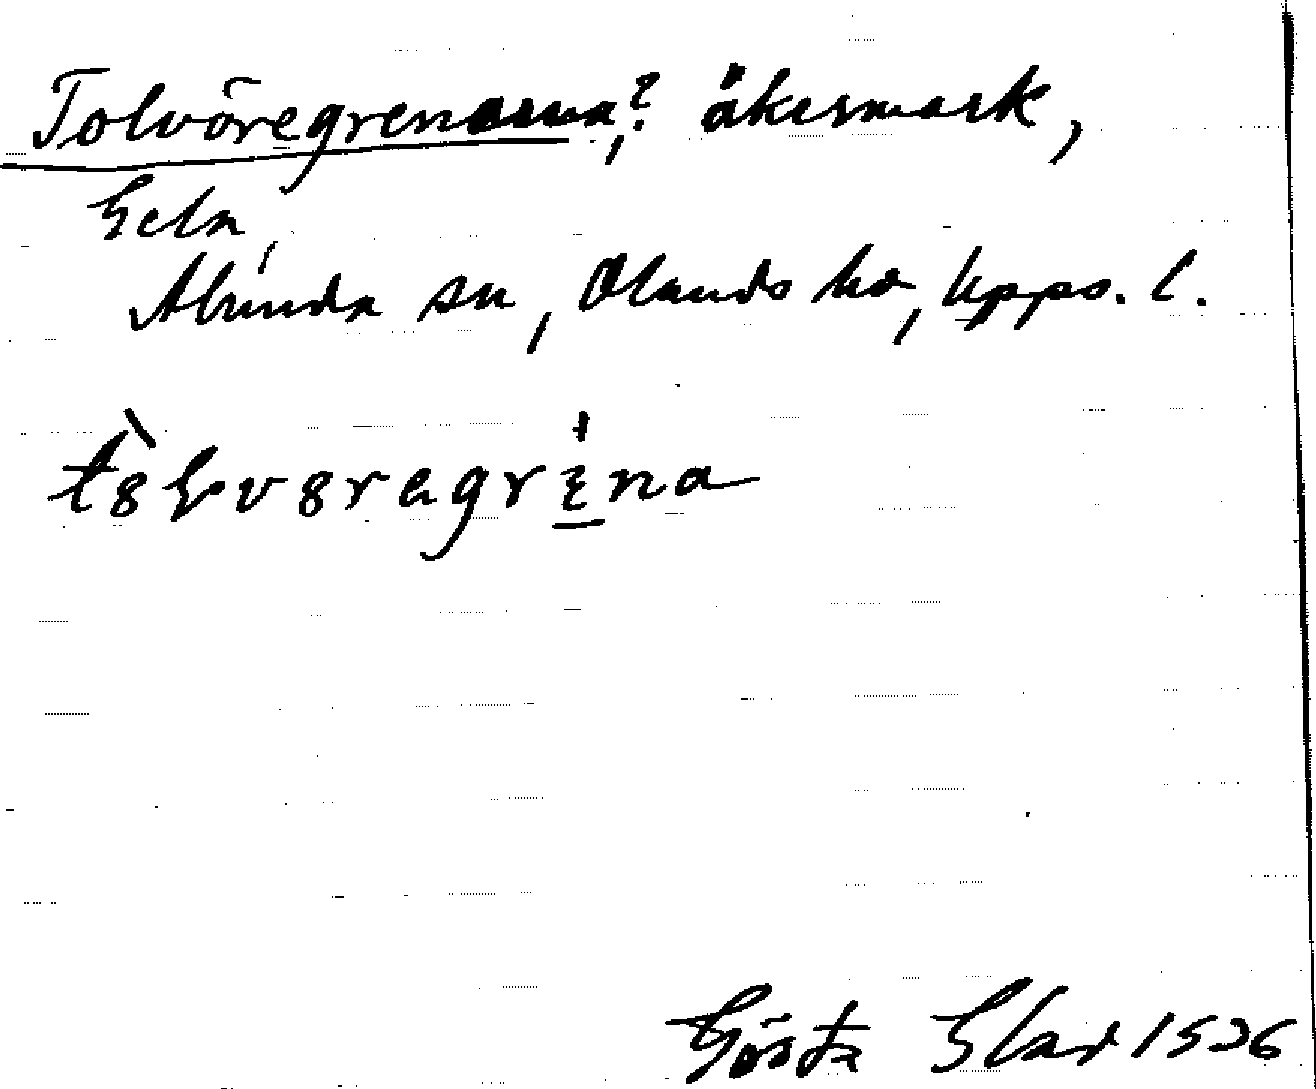 Tolvöregrenarna,? åkermark,
Gela,
Alunda sn, Olands hd, Upps. l.
tòlvöregrena
Gösta Glad 1936